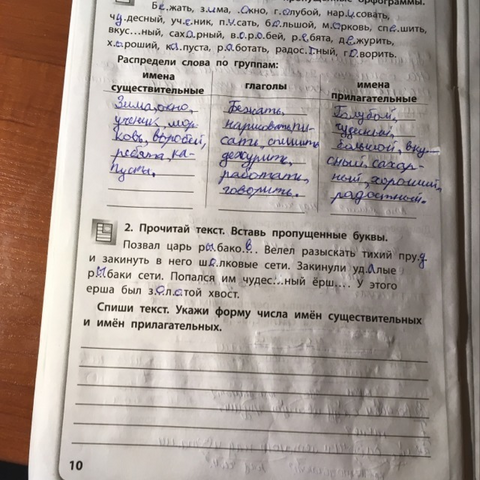 пропущенные орфограммы.
Бе.жать, з.има, .окно, г.олубой, нар.исовать,
чу.десный, уч.еник, пи.сать, бо.льшой, м.орковь, спе.шить,
вкус...ный, сах.арный, в.о.р.о.бей, р.е.бята, де.журить,
х.о.роший, ка.пуста, р.а.ботать, радос.т.ный, г.о.ворить.
Распредели слова по группам:
имена существительные глаголы имена прилагательные
Зима, окно, Бежать, Голубой,
ученик, мор- нарисовать, пи- чудесный,
ковь, воробей, сать, спешить большой, вку-
ребята, ка- дежурить, сный, сахар-
пуста. работать, ный, хороший,
говорить. радостный.
2. Прочитай текст. Вставь пропущенные буквы.
Позвал царь рыбако.в... Велел разыскать тихий пру.д
и закинуть в него шёлковые сети. Закинули уд.алые
рыбаки сети. Попался им чудес...ный ёрш.... У этого
ерша был з.о.л.о.той хвост.
Спиши текст. Укажи форму числа имён существительных
и имён прилагательных.
10